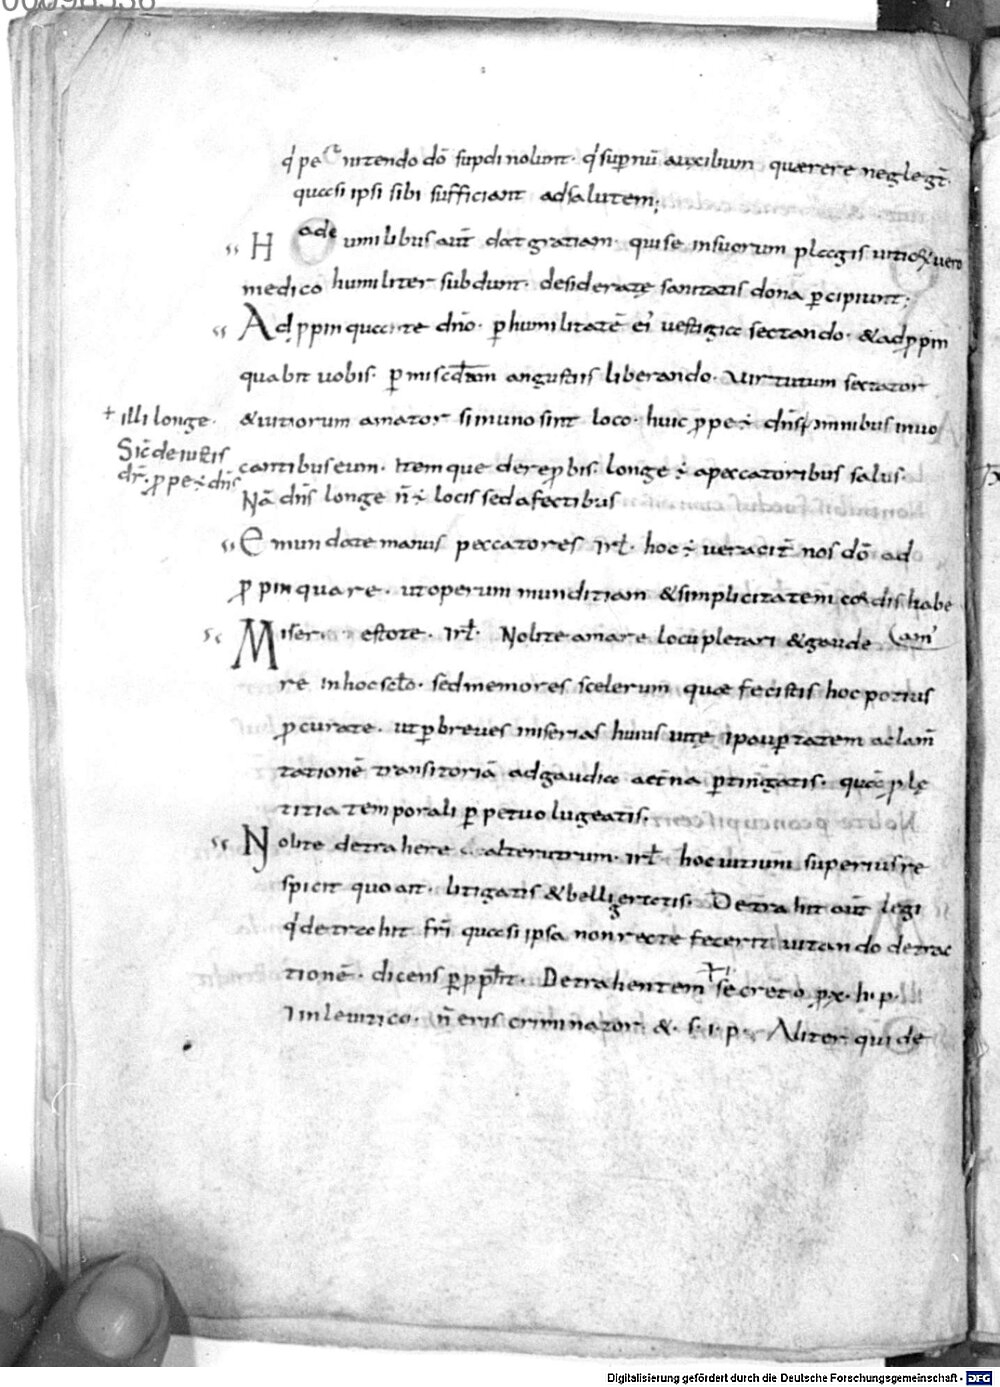 00096336
q' pe nitendo dō supdi nolunt. q' supnū auxilium quærere neglegt̄.
quasi ipsi sibi sufficiant ad salutem;
H umilibus aūt dat gratiam. qui se in suorum plagis uitio& uero
medico humiliter subdunt. desideratę sanitatis dona pcipiunt;
Adppinquate dn̄o. p humilitatē ei' uestigia sectando. & adppin
quabit uobis. p misc̄diam angustiis liberando. Uirtutum sectator
& uitiorum amator si in uno sint loco. huic ppe ÷ dn̄s omnibus inuo
+ illi longe.
Sic̄ de iustis
dr̄. ppe ÷ dn̄s
cantibus eum. Itemque de repbis. longe ÷ a peccatoribus salus.
Nā dn̄s longe n̄ ÷ locis sed afectibus
Emundate manus peccatores irł. hoc ÷ ueracit̄ nos dō ad
ppinquare. ut operum munditiam & simplicitatem cordis habe
am'
Miseri estote. irł. Nolite amare locupletari & gaude
re in hoc scło. sed memores scelerum quæ fecistis hoc potius
pcurate. ut p breues miserias huius uitę ipaupertatem aclam̄
tationē transitoriā ad gaudia aet̄na ptingatis. quā p lę
titia temporali ppetuo lugeatis.
Nolite detrahere alterutrum. irł. hoc uitium superius re
spicit quo ait. litigatis & belligeratis. Detrahit aūt legi
q' detrahit fr̄i quasi ipsa non recte fecerit uitando detrac
tionē. dicens p pph̄t. Detrahentem secreto px. h. p.
I in leuitico. n̄ eris criminator. &. s. i. p. Aliter qui de
Digitalisierung gefördert durch die Deutsche Forschungsgemeinschaft - DFG